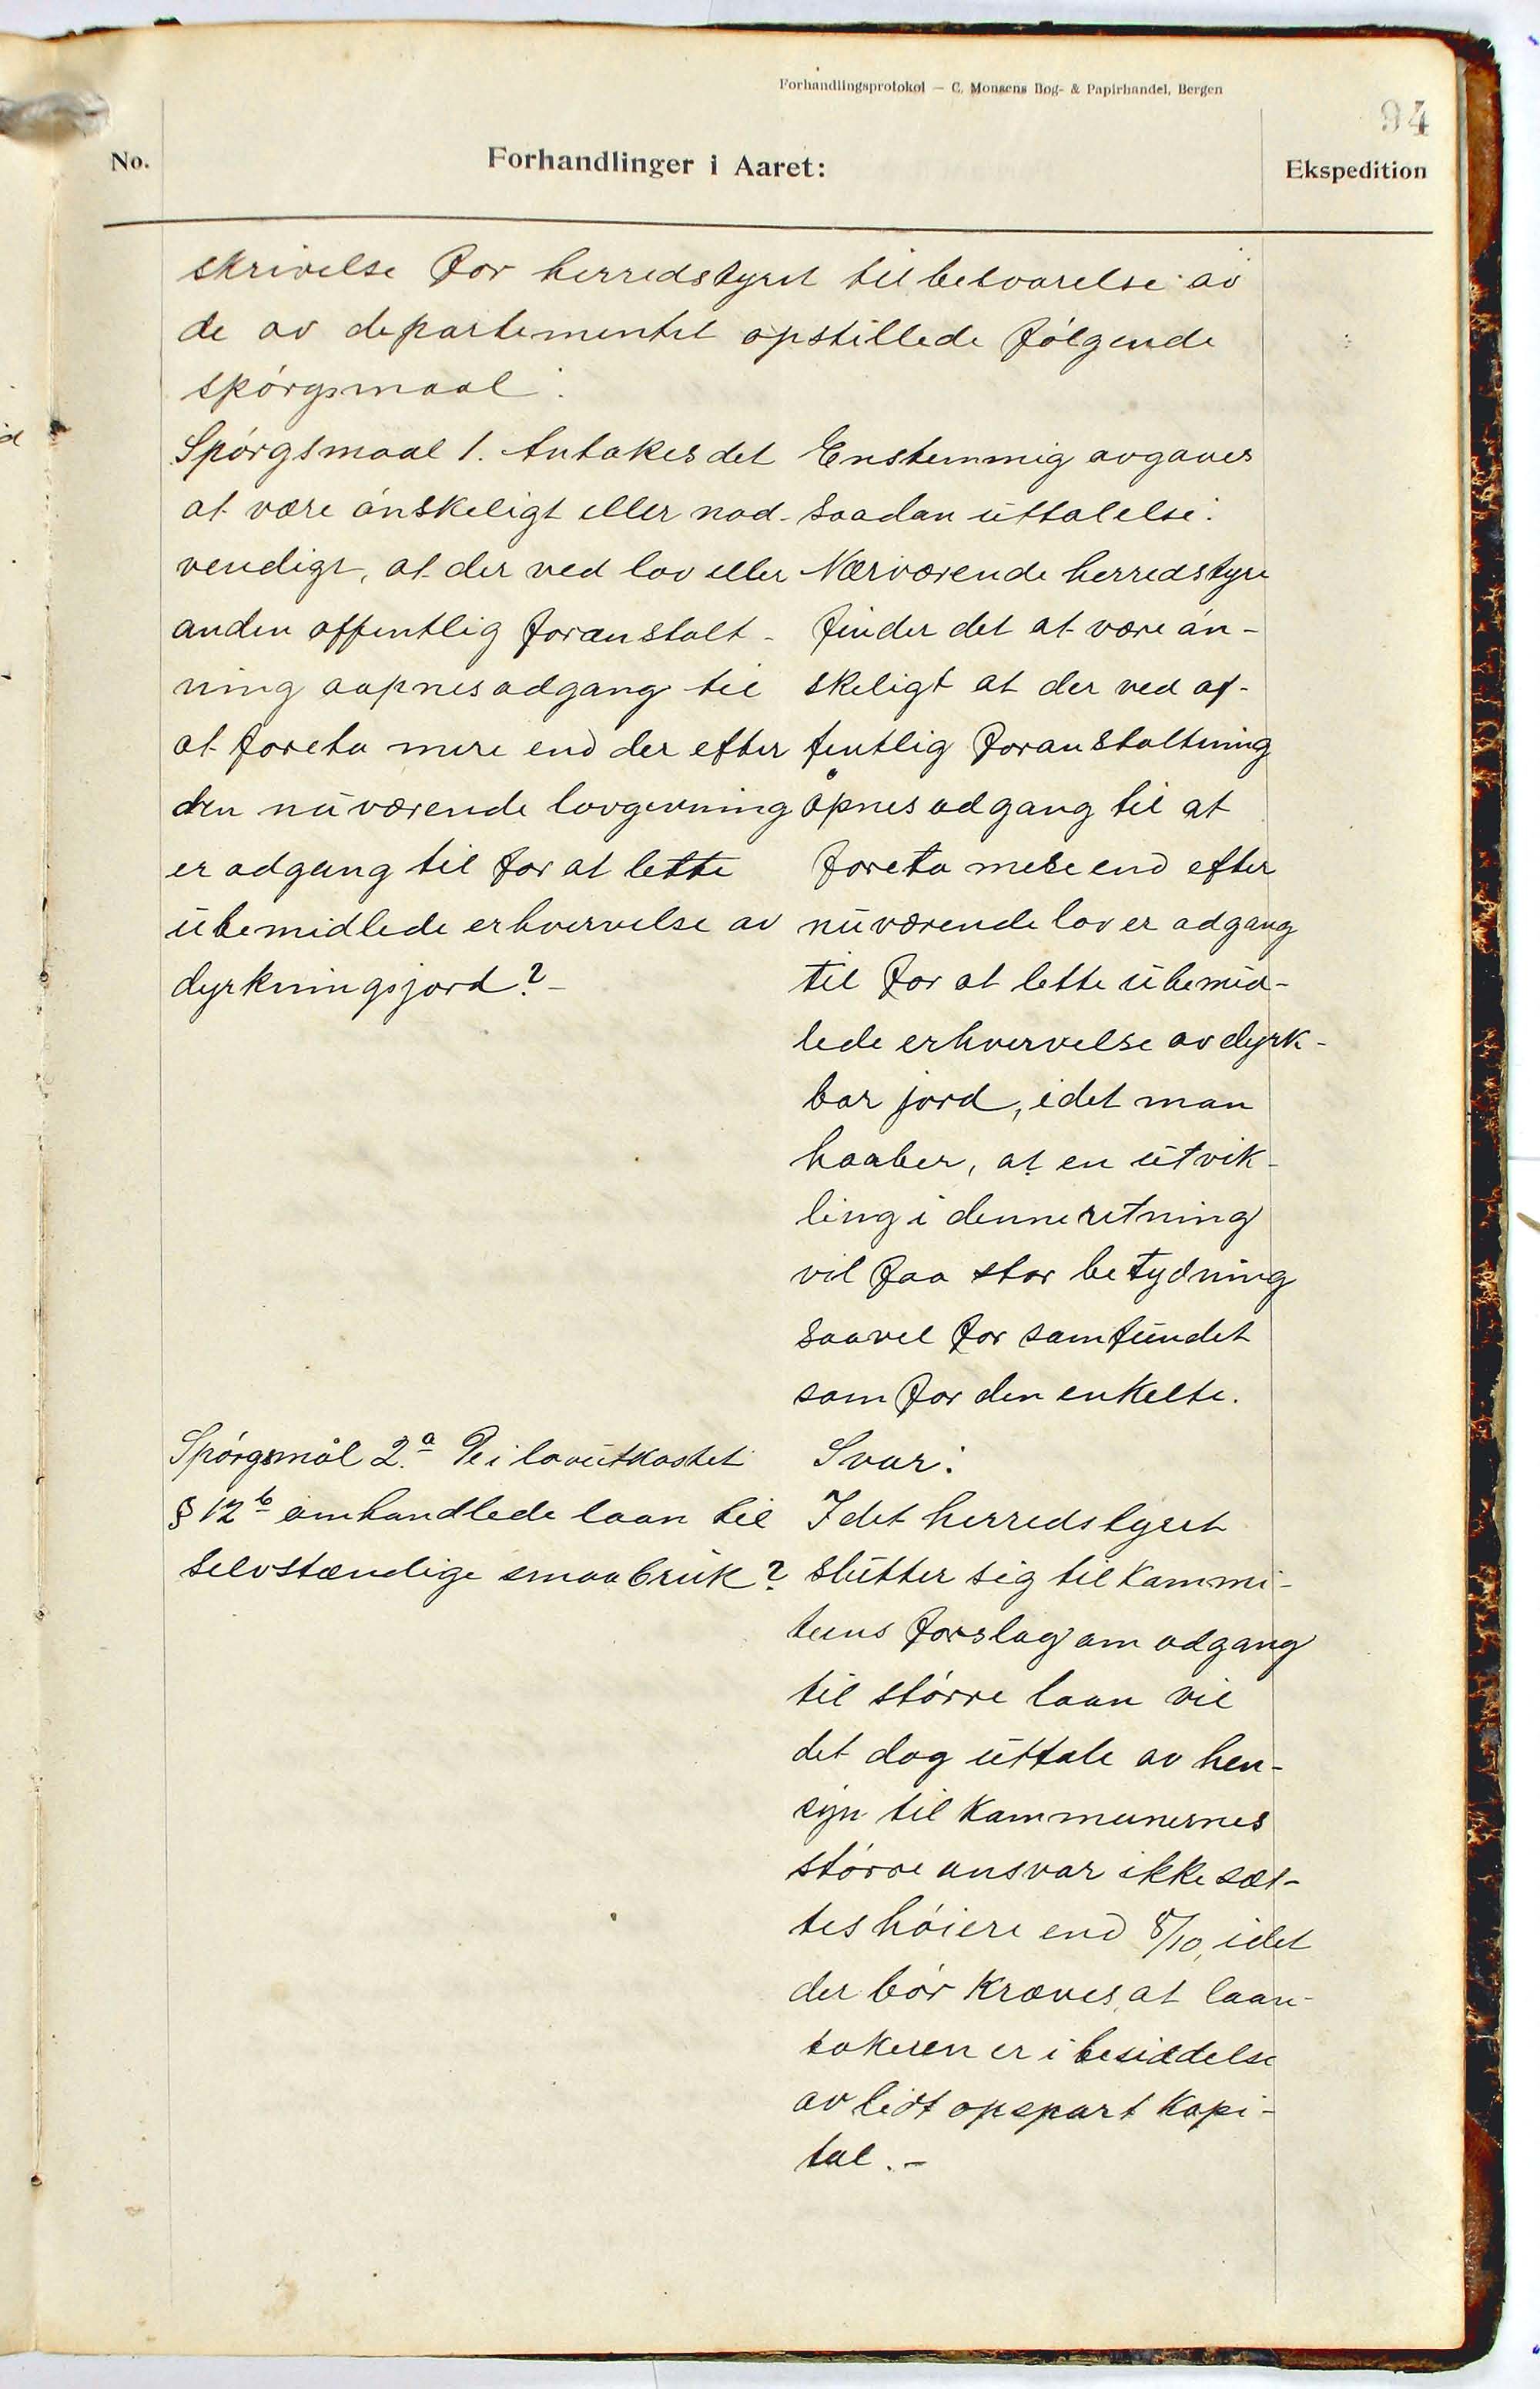 Forhandlingsprotokol — C. Monsens Bog- & Papirhandel, Bergen
94
No.
Forhandlinger i Aaret:
Ekspedition
skrivelse for herredstyret til besvarelse av
de av departementet opstillede følgende
spørgsmaal:
Spørgsmaal 1. Antakes det
at være ønskeligt eller nød-
vendigt, at der ved lov eller
anden offentlig foranstalt-
ning aapnes adgang til
at foreta mere end der efter
den nuværende lovgivning
er adgang til for at lette
ubemidlede erhvervelse av
dyrkningsjord? -
Enstemmig avgaves
saadan uttalelse:
Nærværende herredstyre
finder det at være øn-
skeligt at der ved of-
fentlig foranstaltning
åpnes adgang til at
foreta mere end efter
nuværende lov er adgang
til for at lette ubemid-
lede erhvervelse av dyrk-
bar jord, idet man
haaber, at en utvik-
ling i denne retning
vil faa stor betydning
saavel for samfundet
som for den enkelte.
Spørgsmål 2.a De i lovutkastet
§ 12 b omhandlede laan til
selvstændige smaabruk?
Svar:
Idet herredstyret
slutter sig til kommi-
teens forslag om adgang
til større laan vil
det dog uttale av hen-
syn til kommunernes
større ansvar ikke sæt-
tes høiere end 8/10, idet
der bør kræves, at laan-
takeren er i besiddelse
av lidt opspart kapi-
tal. -